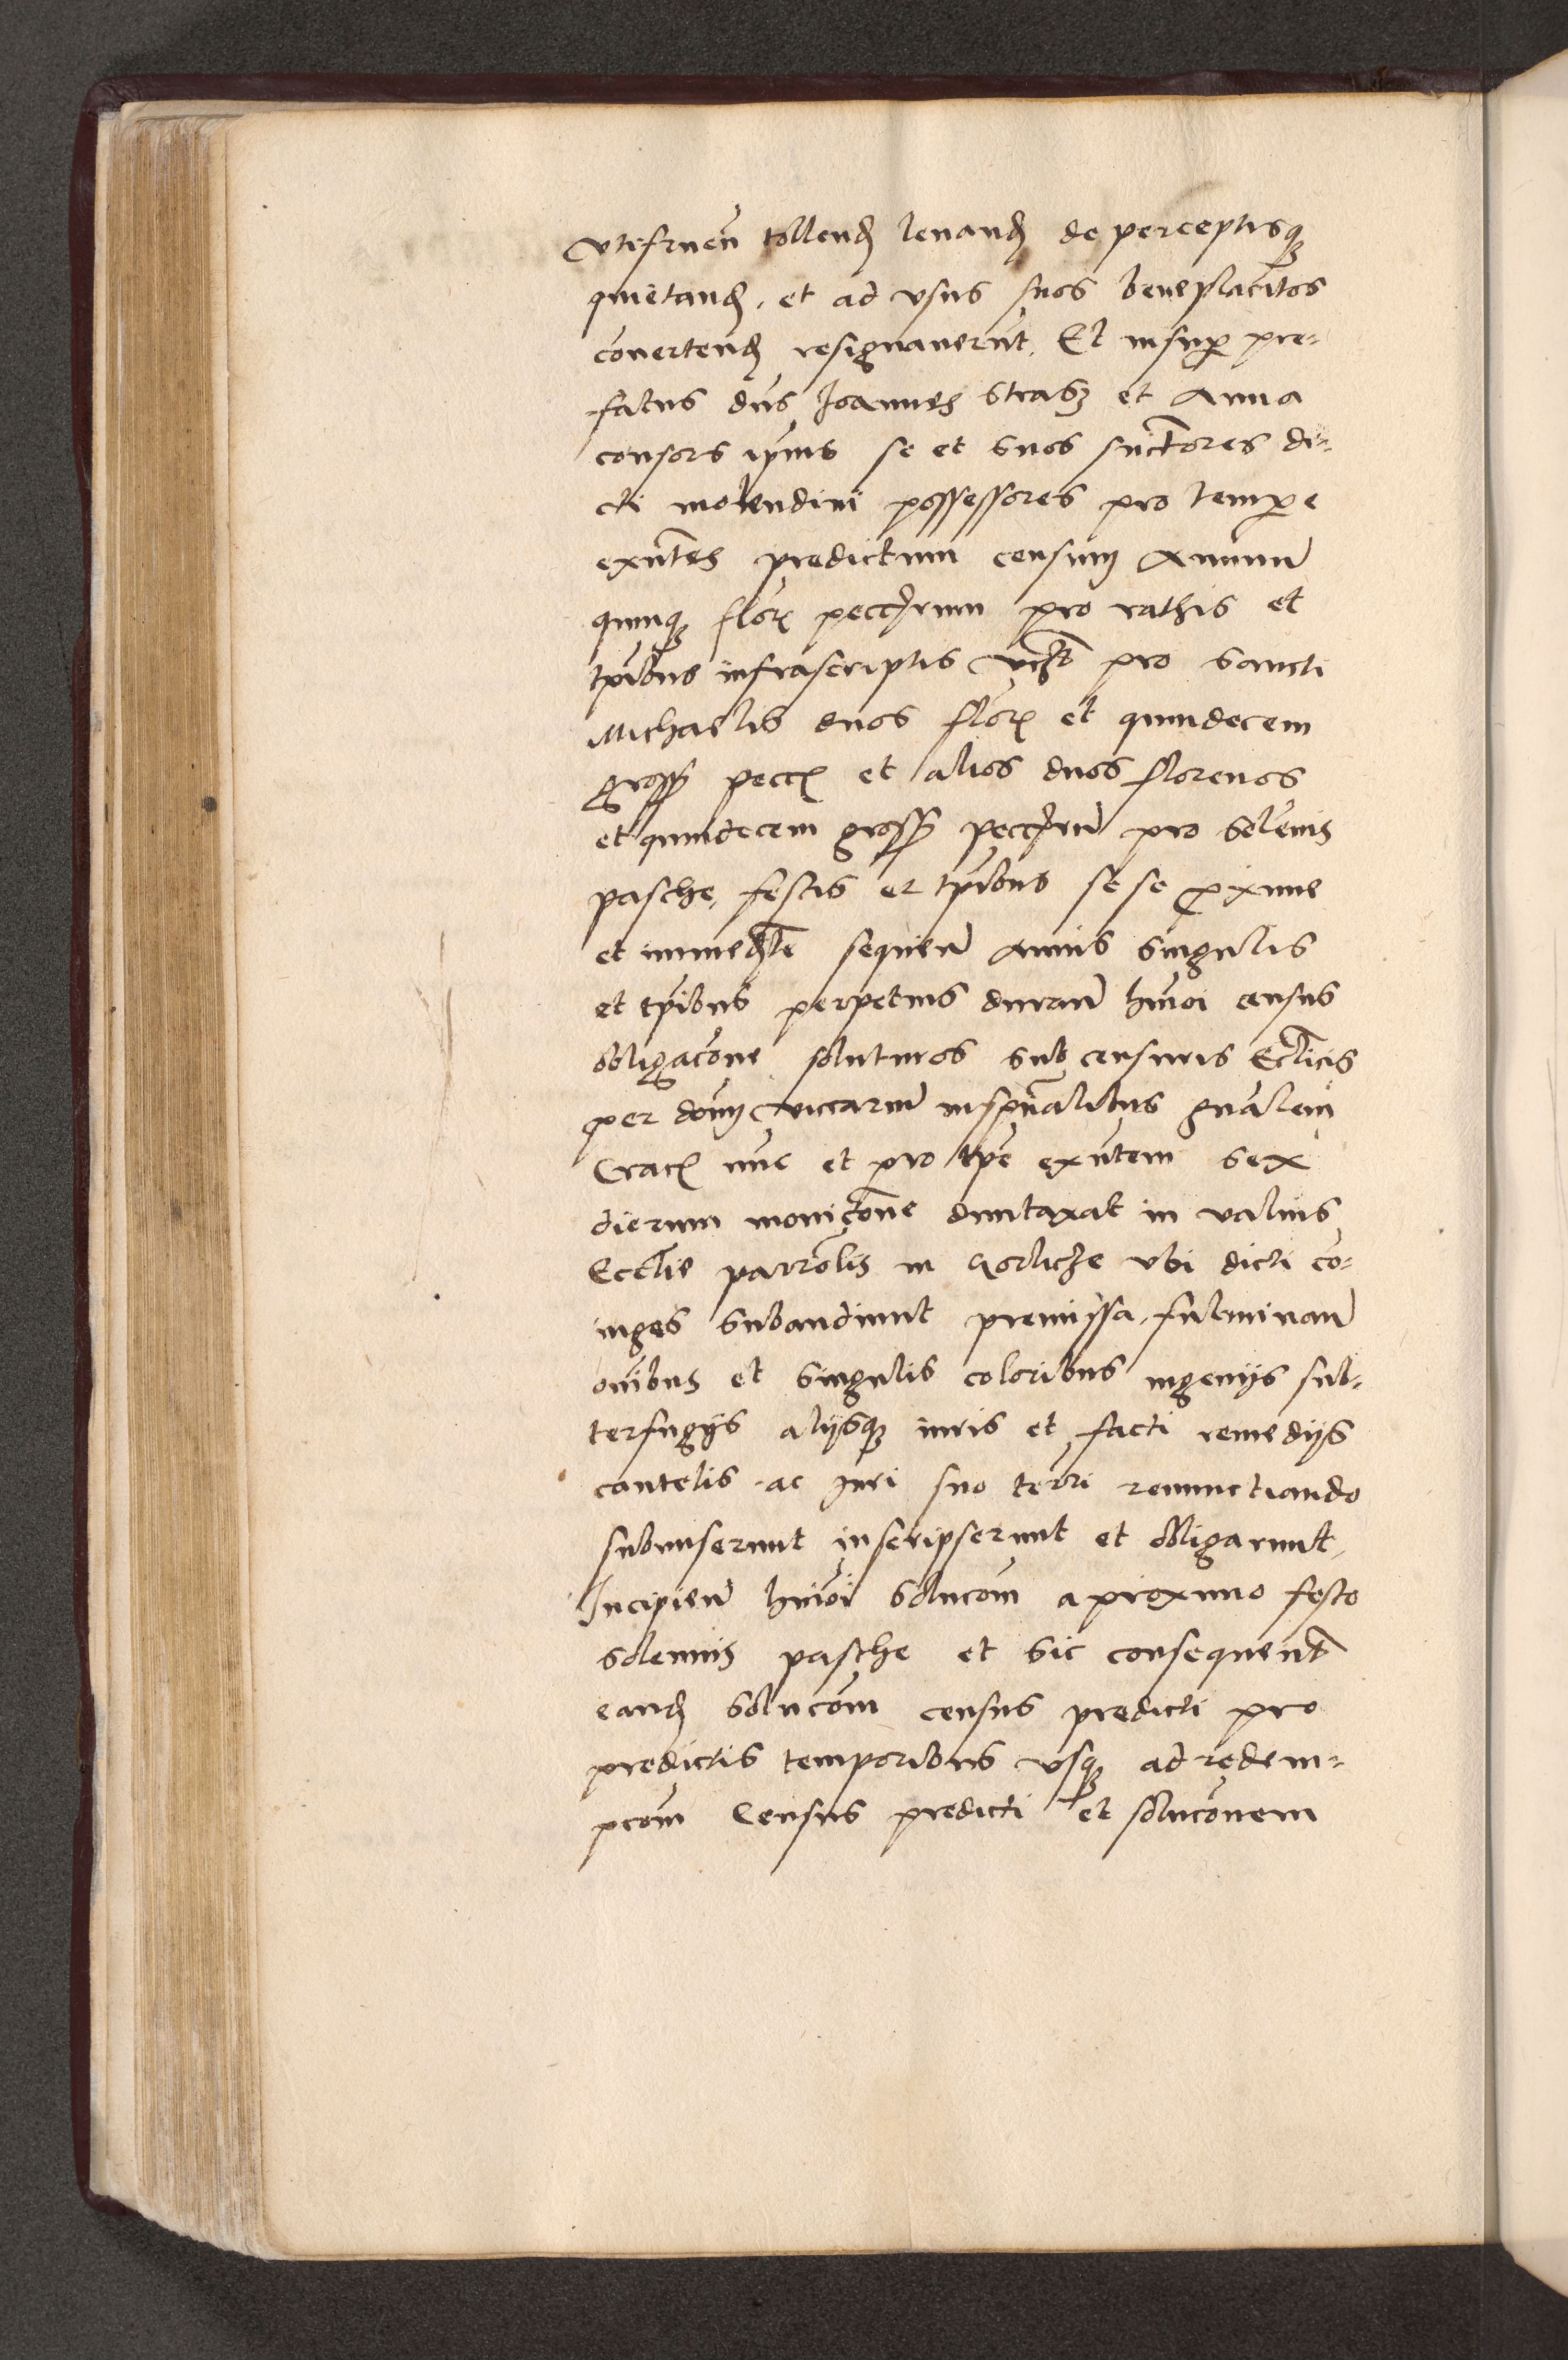 vtifruen̄ tollend̨ levand̨ de perceptisq̨
quietand̨, et ad vsus suos beneplacitos
cōvertend̨ resignaverūt. Et insup̱ pre-
fatus dūs Joannes Strasz et Anna
consors ip̄ius se et suos suc̄tores di-
cti molendini possessores pro temp̱e
exn̄tes predictum censum Annuū
quinq̨ flor̄ peccȳrum pro rathis et
tp̄ibus infrascriptis vid̨t pro sancti
Michaelis duos flor̄ et quindecem
gross̄ pecc̄ et alios duos florenos
et quindecem gross̄ peccȳrū pro solēnis
pasche, festis et tp̄ibus sese ꝓxime
et immed̨te sequen̄ Annis singulis
et tp̄ibus perpetuis duran̄ hm̄oi census
obligac̄one soluturos sub censuris Eccl̄icis
per dōm̄ vicarium inspūalibus gn̄alem
Crac̄ nūc et pro tp̄e exn̄tem sex
dierum monic̄one duntaxat in valuis
Eccl̄ie parrōlis in Gorlicze vbi dicti co-
iuges subaudiunt premissa, fulminan̄
om̄ibus et singulis coloribus ingenijs sub-
terfugijs alijsq̨ iuris et facti remedijs
cautelis ac Juri suo terri renunctiando
submiserunt inscripserunt et obligarunt.
Incipien̄ hm̄oi soluc̄om a proximo festo
solennis pasche et sic consequent̄
eand̨ soluc̄om census predicti pro
predictis temporibus vsq̨ ad redem-
pc̄om Census predicti et soluc̄onem